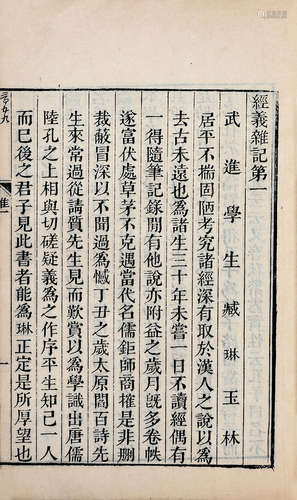 經義雜記第一
武進學生臧琳玉林
居平不揣固陋考究諸經深有取於漢人之說以為
去古未遠也為諸生三十年未嘗一日不讀經偶有
一得隨筆記錄閒有他說亦附益之歲月旣多卷帙
遂富伏處草茅不克遇當代名儒鉅師商搉是非刪
裁蔽冒深以不聞過為憾丁丑之歲太原閻百詩先
生來常過從請質先生見而歎賞以為學識出唐儒
陸孔之上相與切磋疑義為之作序平生知己一人
而已後之君子見此書者能為琳正定是所厚望也